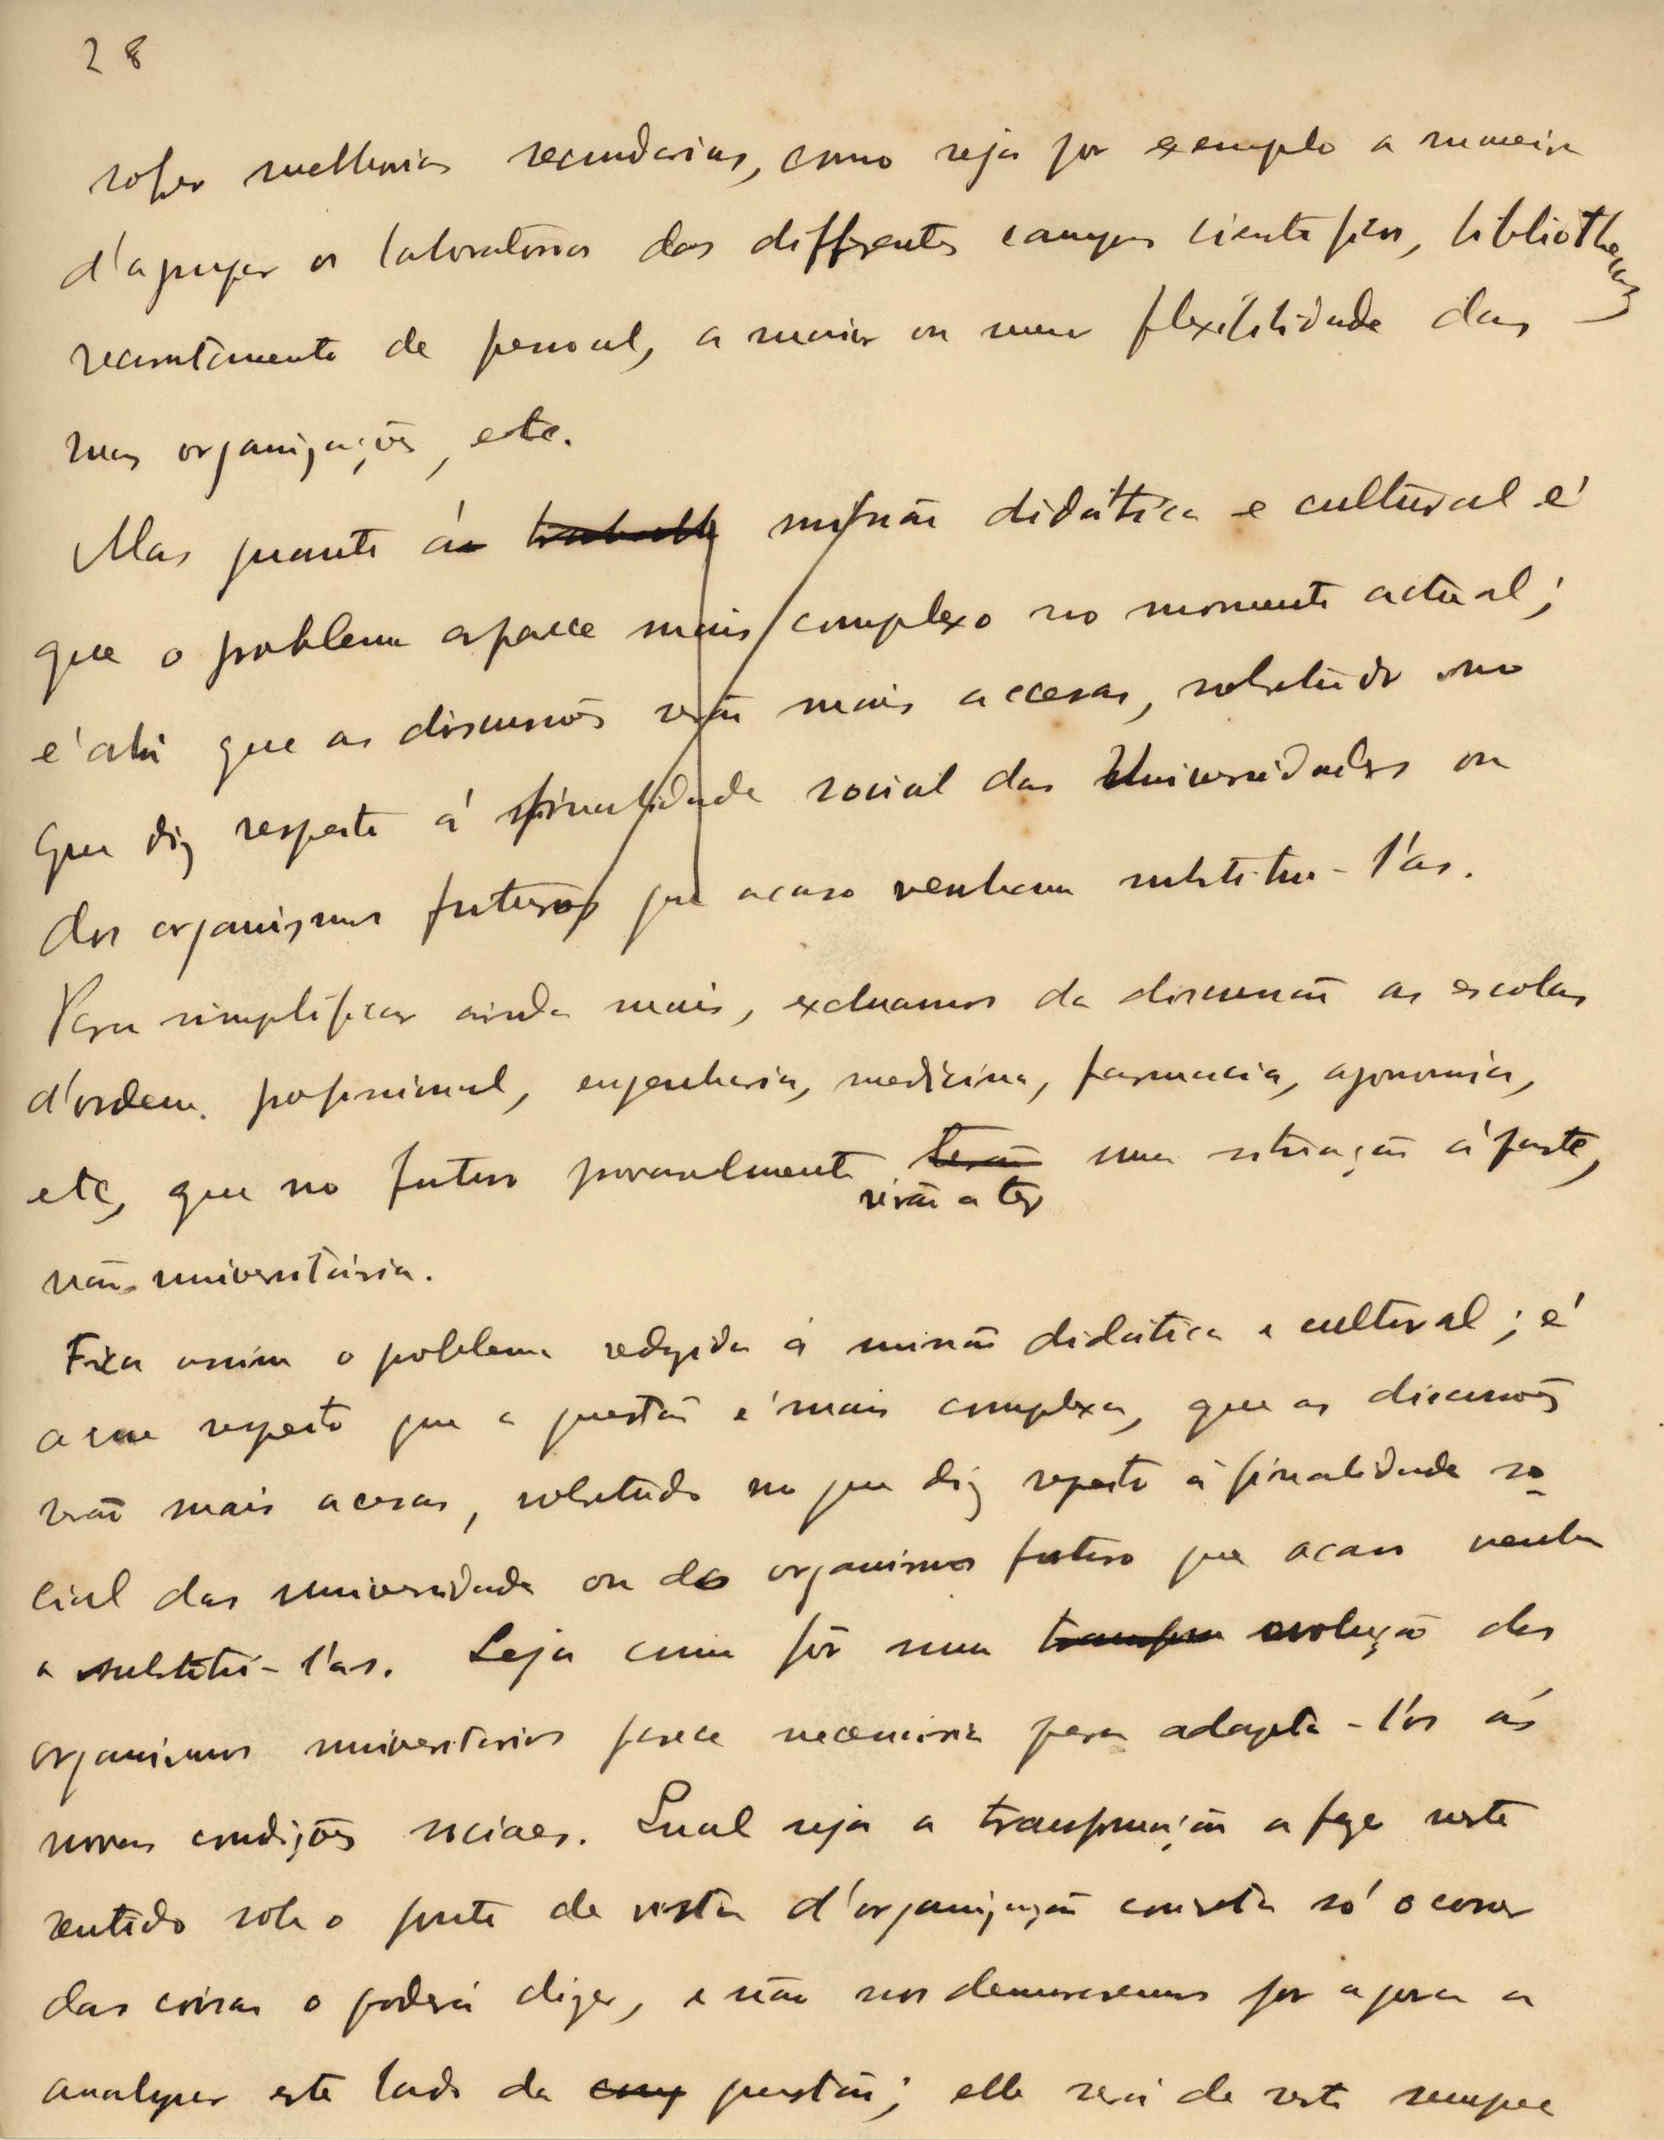 28
sofrer melhorias secundarias, como seja por exemplo a maneira
d'agrupar os laboratorios dos differentes campos scientificos, bibliothecas,
recrutamento de pessoal, a maior ou menor flexibilidade das
suas organizações, etc.
Mas quanto á missão didática e cultural é
que o problema aparece mais complexo no momento actual;
é ahi que as discussões serão mais accesas, sobretudo no
que diz respeito á finalidade social das Universidades ou
dos organismos futuros que acaso venham substitui-l'as.
Para simplificar ainda mais, excluamos da discussão as escolas
d'ordem profissional, engenharia, medicina, farmacia, agronomia,
etc, que no futuro provavelmente terão uma situação á parte,
virão a ter
não universitária.
Fica assim o problema reduzido á missão didática e cultural; é
a esse respeito que a questão é mais complexa, que as discussões
serão mais acesas, sobretudo no que diz respeito á finalidade so-
cial das universidade ou do organismo futuro que acaso venha
a substitui-l'as. Seja como fôr uma evolução dos
organismos universitarios parece necessária para adapta-l'os ás
novas condições sociaes. Qual seja a transformação a fazer neste
sentido sob o ponto de vista d'organização concreta só o correr
das coisas o poderá dizer, e não nos demoraremos por agora a
analyzar este lado da questão; elle será de resto sempre